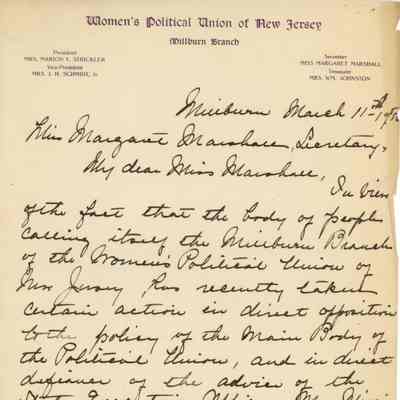 Women's Political Union of New Jersey
Millburn Branch
President
MRS. MARION C. STRICKLER
Vice-President
MRS. J. H. SCHMIDT, Jr.
Secretary
MISS MARGARET MARSHALL
Treasurer
MRS. WM. JOHNSTON
Millburn March 11th
Miss Margaret Marshall, Secretary,
My dear Miss Marshall,
In view
of the fact that the body of people
calling itself the Millburn Branch
of the Women's Political Union of
New Jersey, has recently taken
certain action in direct opposition
to the policy of the Main Body of
the Political Union, and in direct
defiance of the advice of the